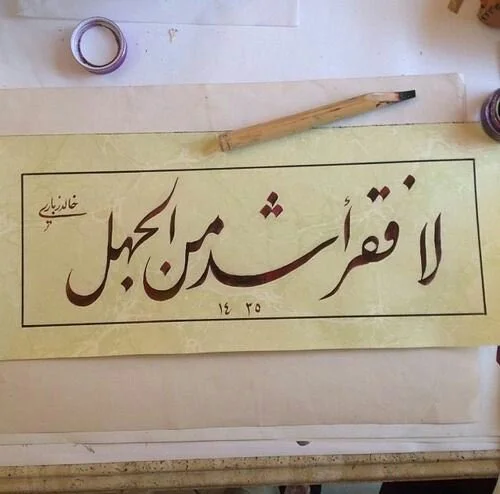 لا فقر أشد من الجهل
خالد زباري
١٤٢٥